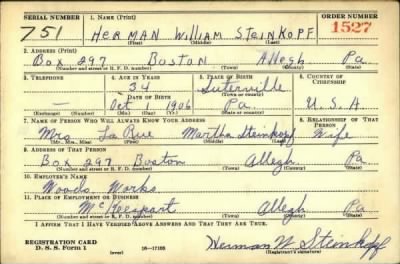 SERIAL NUMBER 1. NAME (Print) ORDER NUMBER
751 HERMAN WILLIAM STEINKOPF 1527
(First) (Middle) (Last)
2. ADDRESS (Print)
Box 297 Boston Allegh Pa.
(Number and street or R. F. D. number) (Town) (County) (State)
3. TELEPHONE 4. AGE IN YEARS 5. PLACE OF BIRTH 6. COUNTRY OF CITIZENSHIP
34 Suterville
DATE OF BIRTH (Town or county)
— Oct 1 1906 Pa. U.S.A
(Exchange) (No.) (Mo.) (Day) (Yr.) (State or country)
7. NAME OF PERSON WHO WILL ALWAYS KNOW YOUR ADDRESS 8. RELATIONSHIP OF THAT PERSON
Mrs La Rue Martha Steinkopf Wife
(Mr., Mrs., Miss) (First) (Middle) (Last)
9. ADDRESS OF THAT PERSON
Box 297 Boston Allegh Pa
(Number and street or R. F. D. number) (Town) (County) (State)
10. EMPLOYER'S NAME
Woods Works
11. PLACE OF EMPLOYMENT OR BUSINESS
McKeesport Allegh Pa
(Number and street or R. F. D. number) (Town) (County) (State)
I AFFIRM THAT I HAVE VERIFIED ABOVE ANSWERS AND THAT THEY ARE TRUE.
REGISTRATION CARD
D. S. S. Form 1 (over) 16—17105 Herman W Steinkopf
(Registrant's signature)